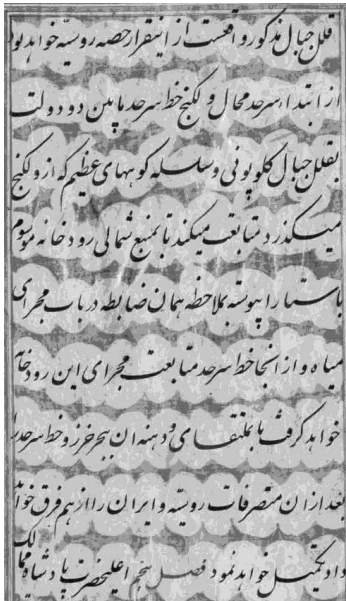 قلل جبال مذکور واقعست از اینقرار حصه روسیه خواهد بود
از ابتدا سرحد محال ولکیج خط سرحد مابین دو دولت
بقلل جبال کلوپوتی و سلسله کوههای عظیم که از ولکیج
میگذرد متابعت میکند تا بمنبع شمالی رودخانه موسوم
باستارا پیوسته بملاحظه همان ضابطه در باب مجرای
میاه و از آنجا خط سرحد متابعت مجرای این رودخانه
خواهد کرد تا بملتقای دهنه ان ببحر خزر و خط سرحد را
بعد از ان متصرفات روسیه و ایران را از هم فرق خواهد
داد تکمیل خواهد نمود فصل پنجم اعلیحضرت پادشاه ممالک